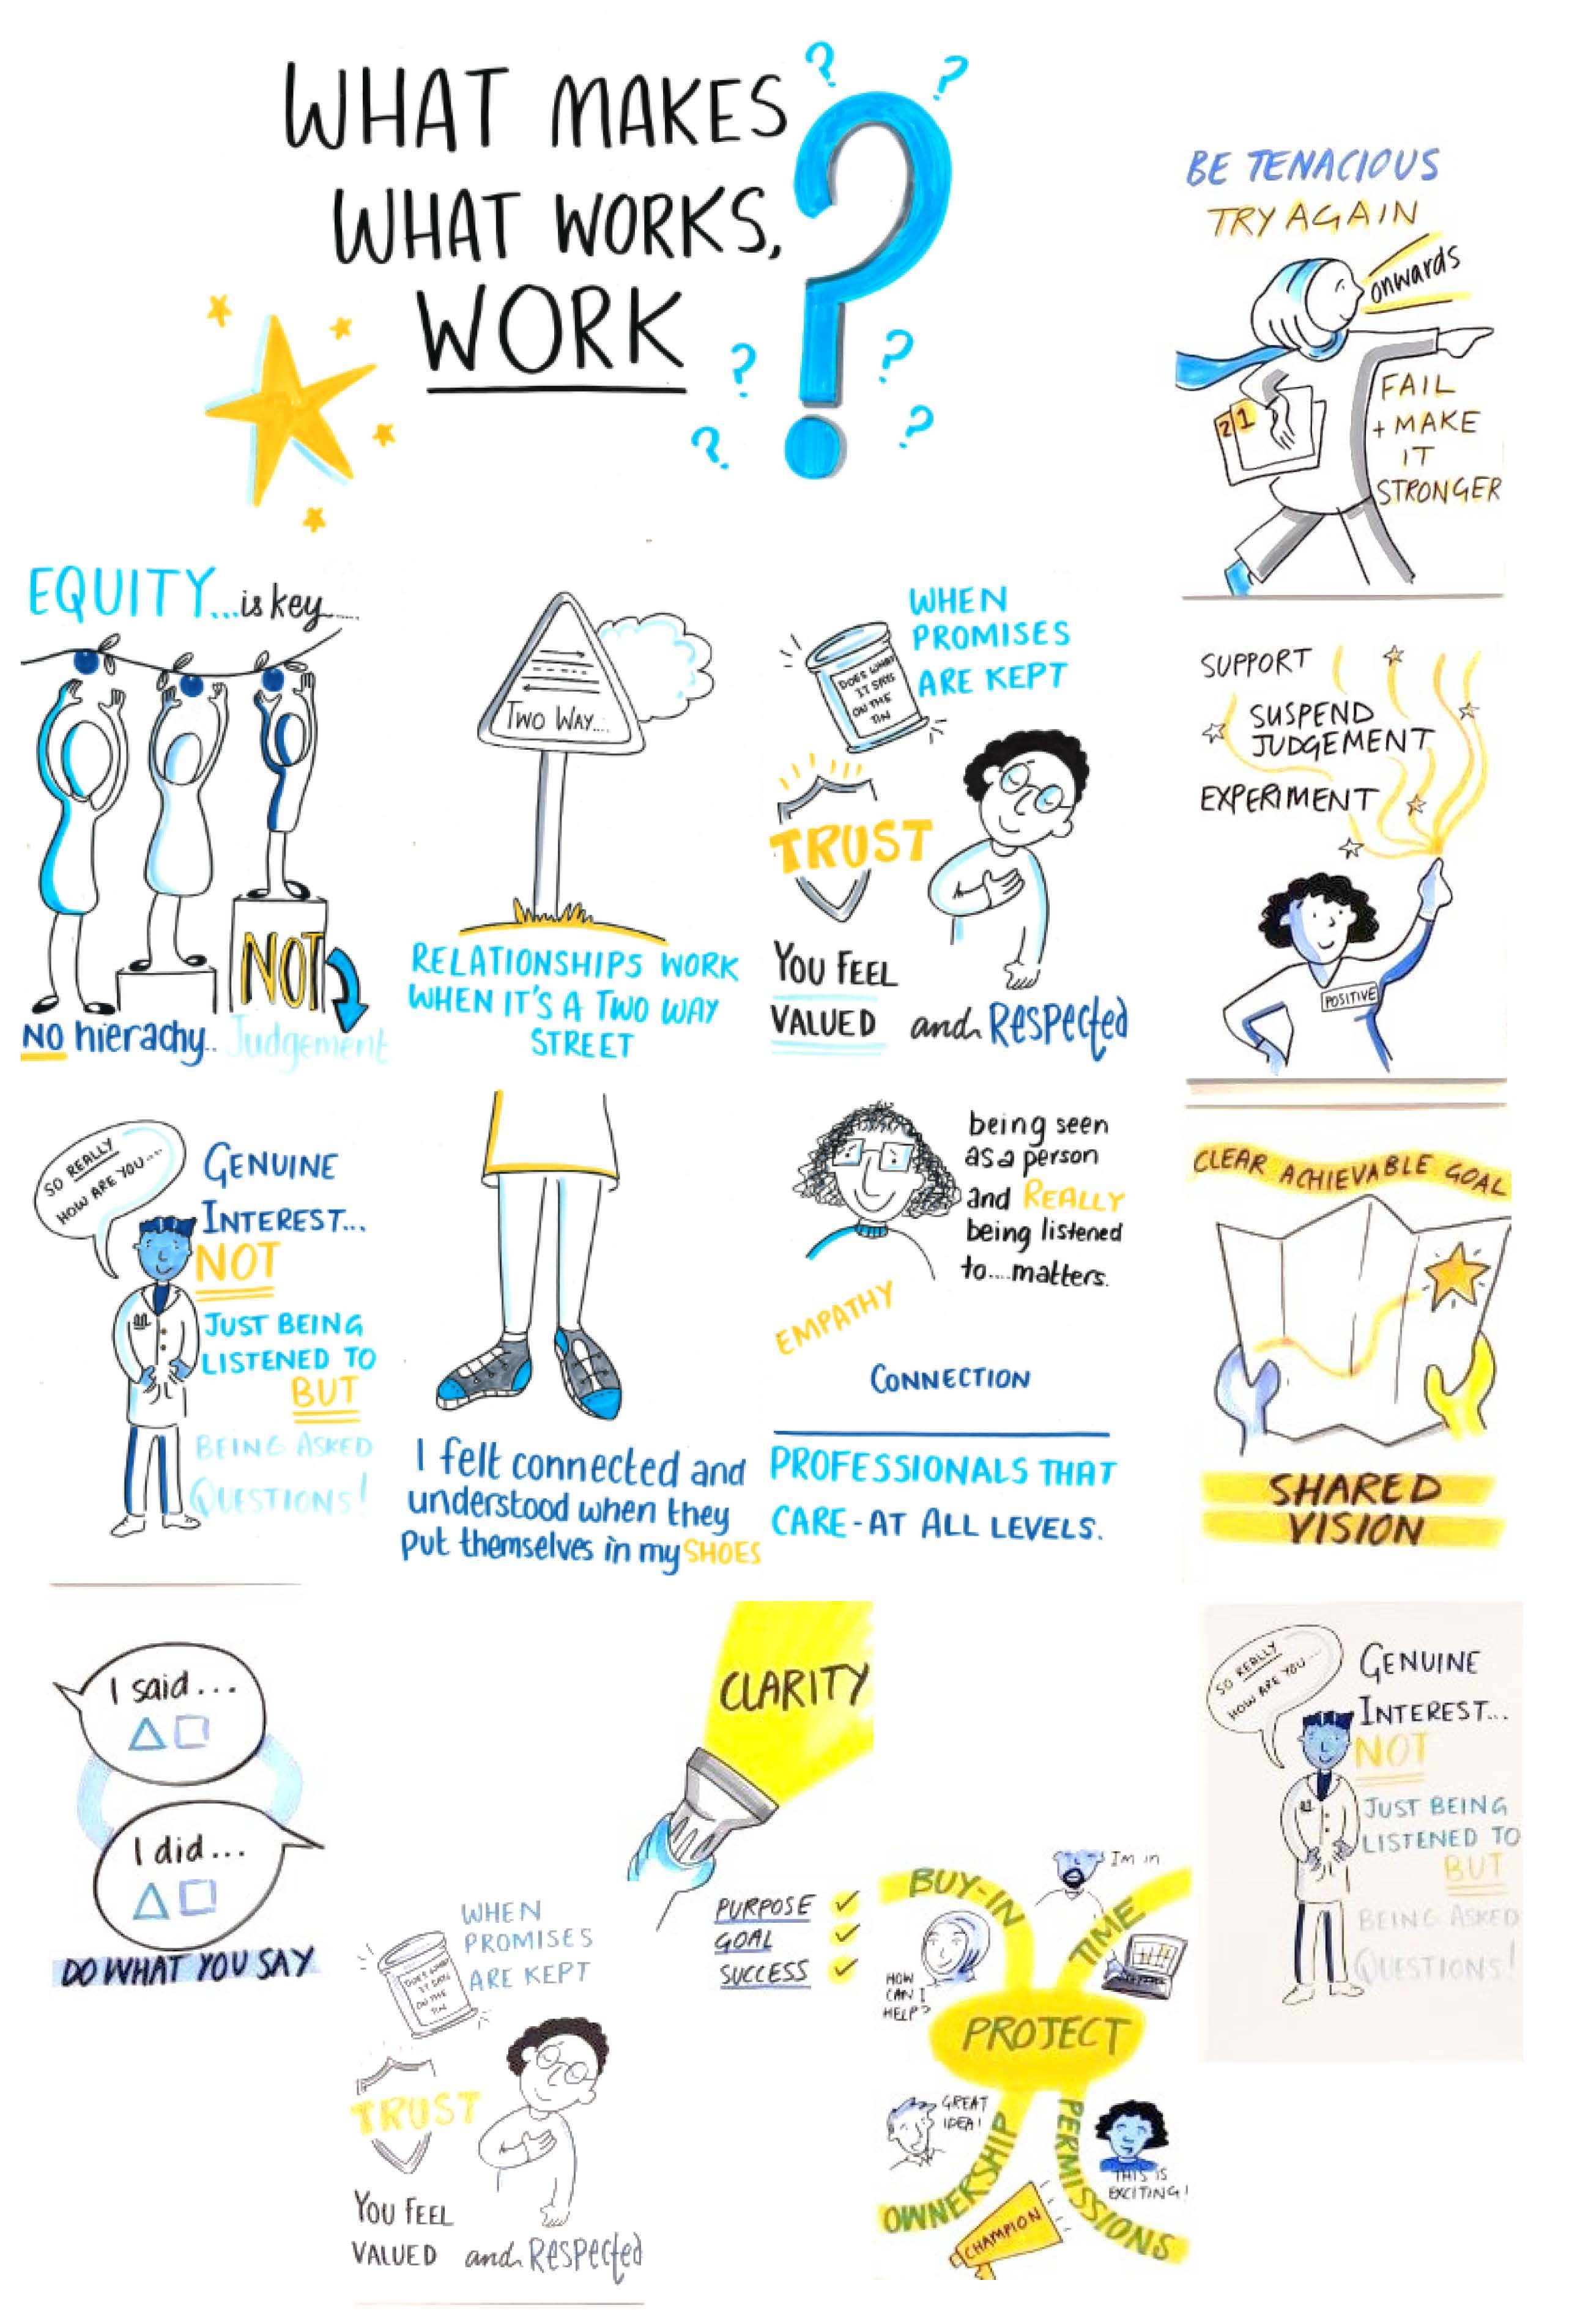 WHAT MAKES
WHAT WORKS,
WORK
?
BE TENACIOUS
TRY AGAIN
onwards
21
FAIL
+ MAKE
IT
STRONGER
EQUITY...is key......
NOT
NO hierachy.. Judgement
TWO WAY....
RELATIONSHIPS WORK
WHEN IT'S A TWO WAY
STREET
WHEN
PROMISES
ARE KEPT
DOES WHAT
IT SAYS
ON THE
TIN
TRUST
YOU FEEL
VALUED and Respected
SUPPORT
SUSPEND
JUDGEMENT
EXPERIMENT
POSITIVE
SO REALLY
HOW ARE YOU....
GENUINE
INTEREST...
NOT
JUST BEING
LISTENED TO
BUT
BEING ASKED
QUESTIONS!
I felt connected and
understood when they
put themselves in my SHOES
being seen
as a person
and REALLY
being listened
to....matters.
EMPATHY
CONNECTION
PROFESSIONALS THAT
CARE - AT ALL LEVELS.
CLEAR ACHIEVABLE GOAL
SHARED
VISION
I said...
I did...
DO WHAT YOU SAY
WHEN
PROMISES
ARE KEPT
DOES WHAT
IT SAYS
ON THE
TIN
TRUST
YOU FEEL
VALUED and Respected
CLARITY
PURPOSE ✓
GOAL ✓
SUCCESS ✓
BUY-IN
I'm in
TIME
HOW
CAN I
HELP?
PROJECT
GREAT
IDEA!
OWNERSHIP
PERMISSIONS
THIS IS
EXCITING!
CHAMPION
SO REALLY
HOW ARE YOU....
GENUINE
INTEREST...
NOT
JUST BEING
LISTENED TO
BUT
BEING ASKED
QUESTIONS!